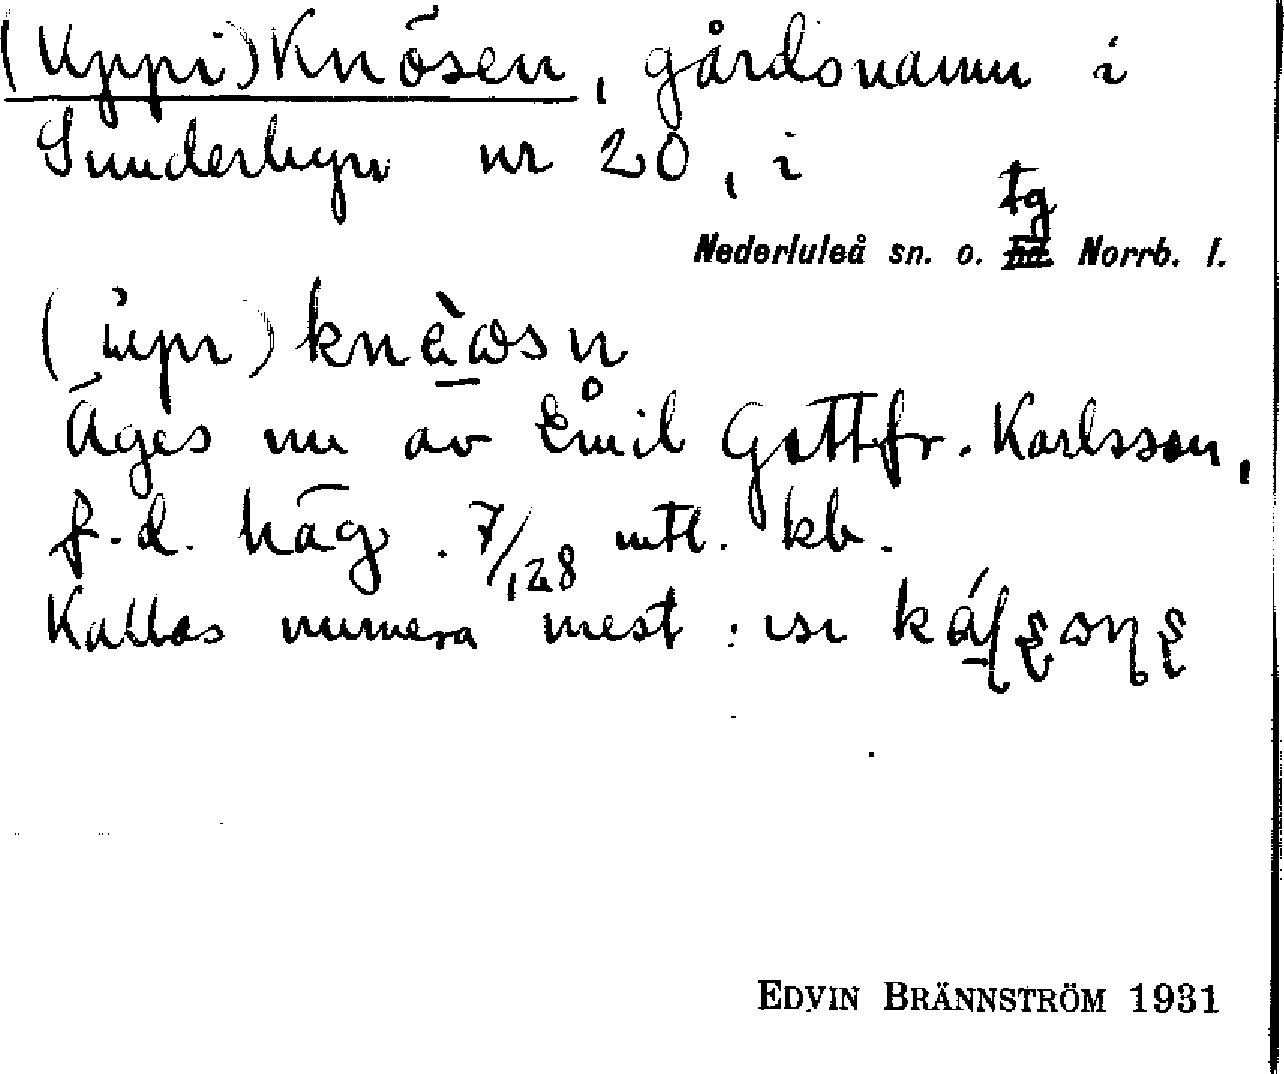 (Uppi)Knösen, gårdsnamn i
Sunderbyn nr 20, i
tg
Nederluleå sn. o. hd. Norrb. l.
Äges nu av Emil Gottfr. Karlsson,
f.d. häg. 7/128 mtl. kb.
Kallas numera mest:
EDVIN BRÄNNSTRÖM 1931